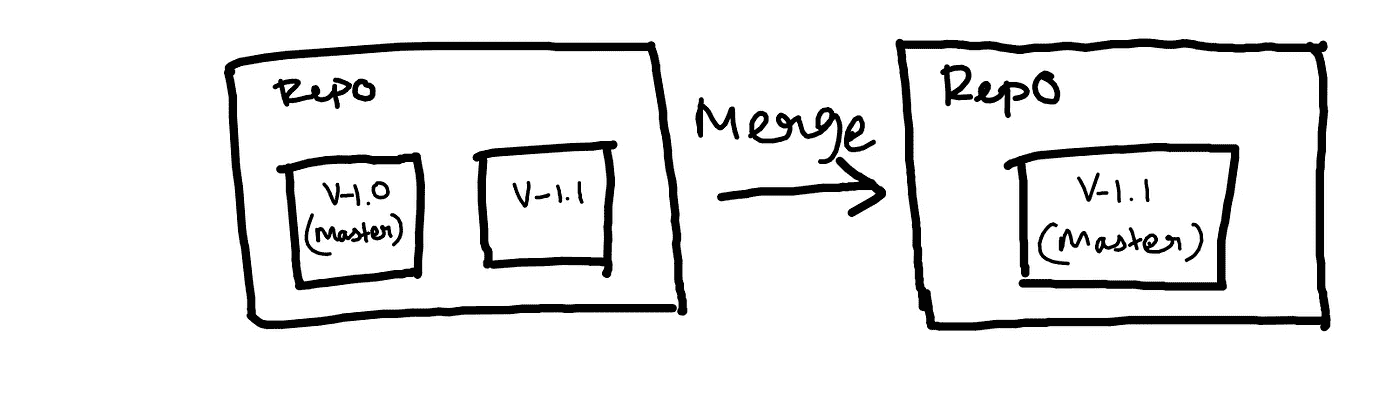 Repo
V-1.0
(Master)
V-1.1
Merge
Repo
V-1.1
(Master)